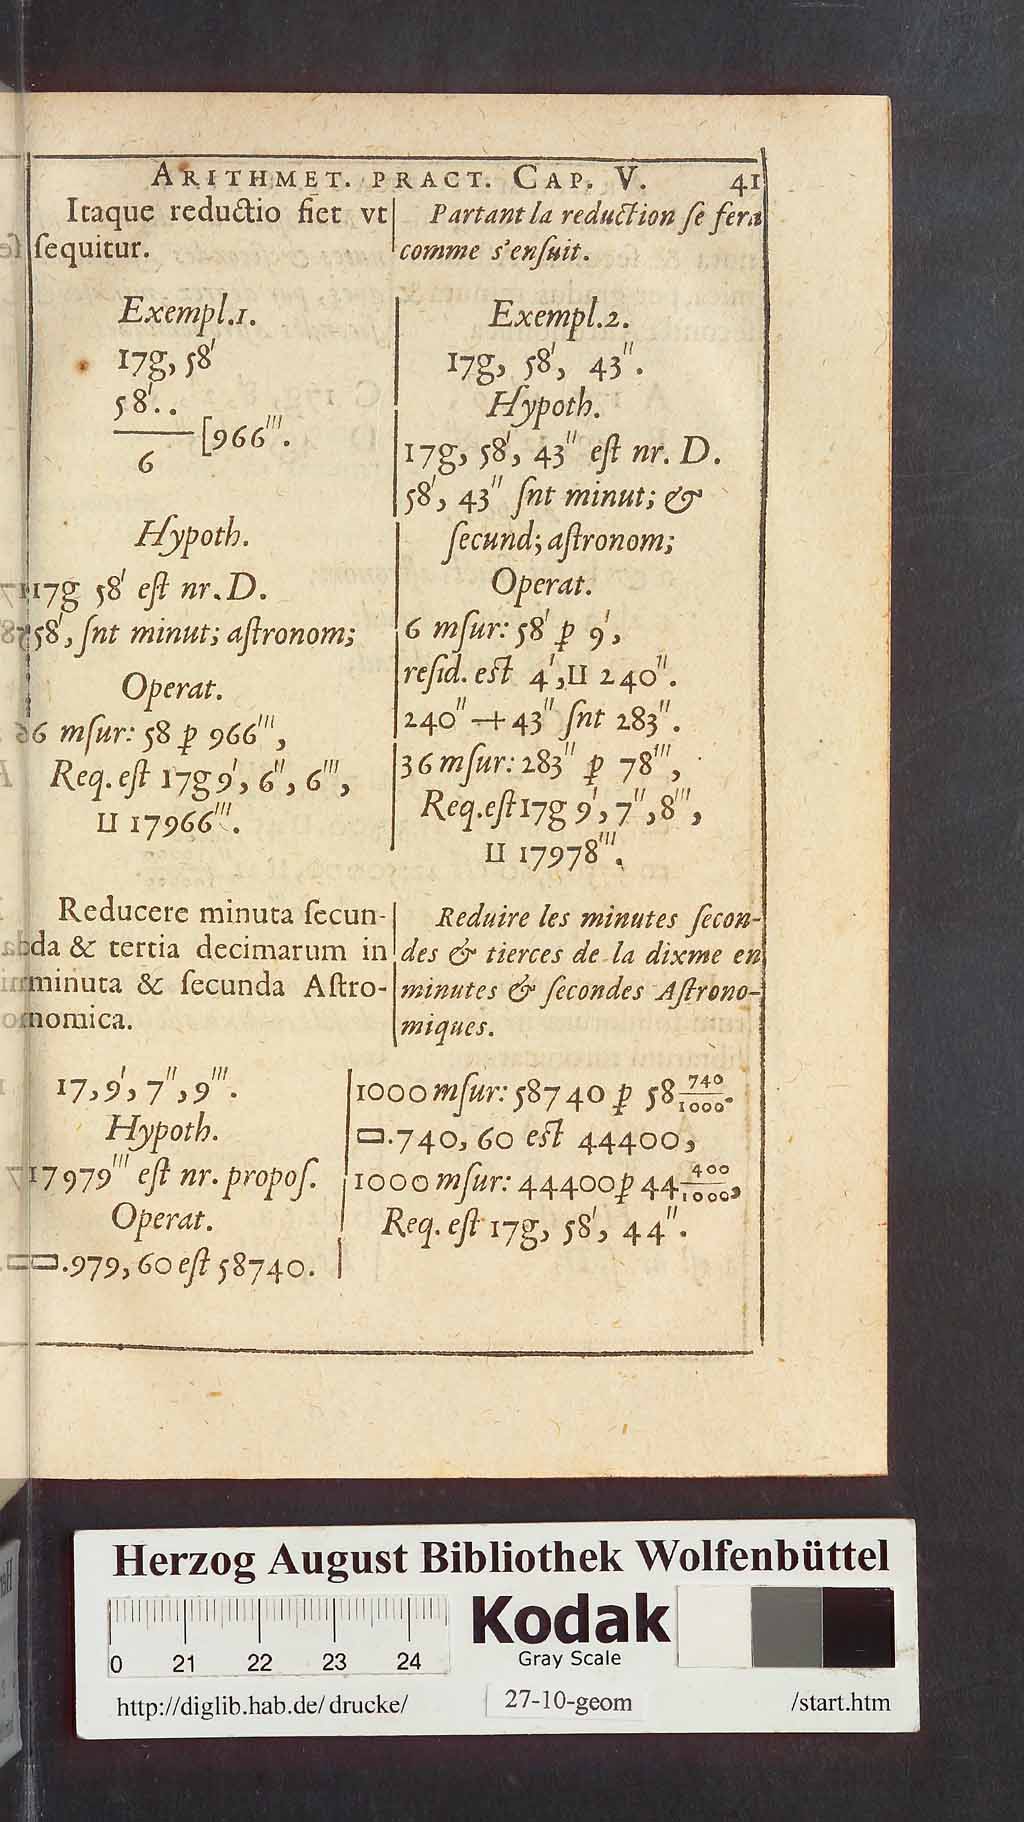 ARITHMET. PRACT. CAP. V. 41
Itaque reductio fiet vt
ſequitur.
Partant la reduction ſe fera
comme s'enſuit.
Exempl.1.
17g, 58'
58'..
6 [966'''.
Hypoth.
17g 58' eſt nr. D.
58', ſnt minut; aſtronom;
Operat.
6 mſur: 58 ꝑ 966''',
Req. eſt 17g 9', 6'', 6''',
II 17966'''.
Exempl.2.
17g, 58', 43''.
Hypoth.
17g, 58', 43'' eſt nr. D.
58', 43'' ſnt minut; &
ſecund; aſtronom;
Operat.
6 mſur: 58' ꝑ 9',
reſid. est 4', II 240''.
240'' + 43'' ſnt 283''.
36 mſur: 283'' ꝑ 78''',
Req. eſt 17g 9', 7'', 8''',
II 17978'''.
Reducere minuta ſecun-
da & tertia decimarum in
minuta & ſecunda Aſtro-
nomica.
Reduire les minutes ſecon-
des & tierces de la dixme en
minutes & ſecondes Aſtrono-
miques.
17, 9', 7'', 9'''.
Hypoth.
17979''' eſt nr. propoſ.
Operat.
▭.979, 60 eſt 58740.
1000 mſur: 58740 ꝑ 58 740/1000.
▭.740, 60 est 44400,
1000 mſur: 44400 ꝑ 44 400/1000,
Req. eſt 17g, 58', 44''.
Herzog August Bibliothek Wolfenbüttel
0 21 22 23 24
Kodak
Gray Scale
http://diglib.hab.de/ drucke/ 27-10-geom /start.htm